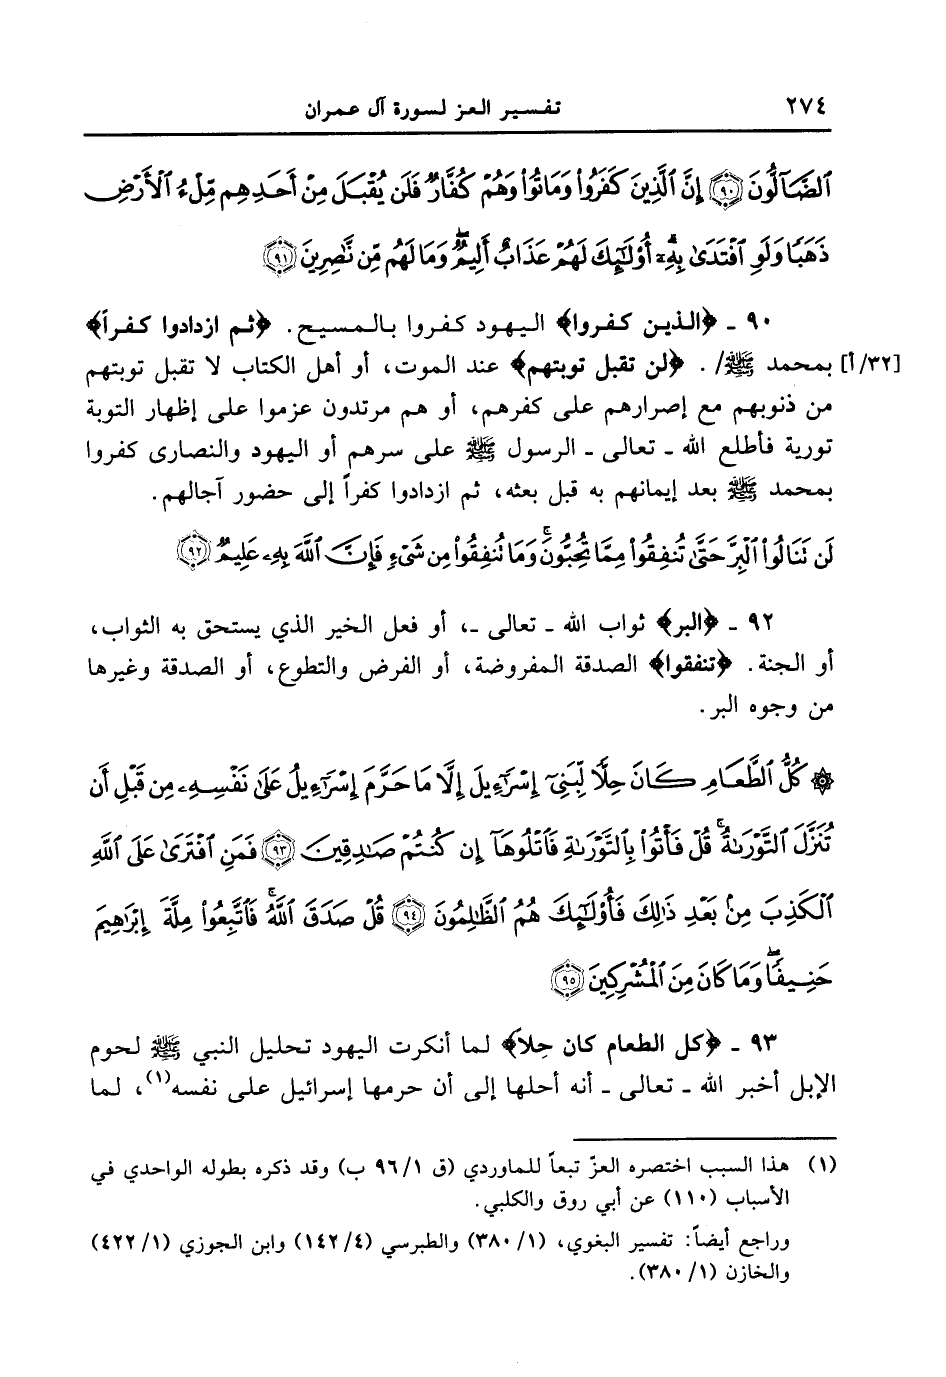 ٢٧٤ تفسير العز لسورة آل عمران
ٱلضَّآلُّونَ ﴿٩٠﴾ إِنَّ ٱلَّذِينَ كَفَرُوا۟ وَمَاتُوا۟ وَهُمْ كُفَّارٌ فَلَن يُقْبَلَ مِنْ أَحَدِهِم مِّلْءُ ٱلْأَرْضِ
ذَهَبًا وَلَوِ ٱفْتَدَىٰ بِهِۦٓ ۗ أُو۟لَـٰٓئِكَ لَهُمْ عَذَابٌ أَلِيمٌ ۖ وَمَا لَهُم مِّن نَّـٰصِرِينَ ﴿٩١﴾
٩٠ ـ ﴿الذين كفروا﴾ اليهود كفروا بالمسيح. ﴿ثم ازدادوا كفراً﴾
[٣٢/أ] بمحمد ﷺ/ . ﴿لن تقبل توبتهم﴾ عند الموت، أو أهل الكتاب لا تقبل توبتهم
من ذنوبهم مع إصرارهم على كفرهم، أو هم مرتدون عزموا على إظهار التوبة
تورية فأطلع الله ـ تعالى ـ الرسول ﷺ على سرهم أو اليهود والنصارى كفروا
بمحمد ﷺ بعد إيمانهم به قبل بعثه، ثم ازدادوا كفراً إلى حضور آجالهم.
لَن تَنَالُوا۟ ٱلْبِرَّ حَتَّىٰ تُنفِقُوا۟ مِمَّا تُحِبُّونَ ۚ وَمَا تُنفِقُوا۟ مِن شَىْءٍ فَإِنَّ ٱللَّهَ بِهِۦ عَلِيمٌ ﴿٩٢﴾
٩٢ ـ ﴿البر﴾ ثواب الله ـ تعالى ـ، أو فعل الخير الذي يستحق به الثواب،
أو الجنة. ﴿تنفقوا﴾ الصدقة المفروضة، أو الفرض والتطوع، أو الصدقة وغيرها
من وجوه البر.
۞ كُلُّ ٱلطَّعَامِ كَانَ حِلًّا لِّبَنِىٓ إِسْرَٰٓءِيلَ إِلَّا مَا حَرَّمَ إِسْرَٰٓءِيلُ عَلَىٰ نَفْسِهِۦ مِن قَبْلِ أَن
تُنَزَّلَ ٱلتَّوْرَىٰةُ ۗ قُلْ فَأْتُوا۟ بِٱلتَّوْرَىٰةِ فَٱتْلُوهَآ إِن كُنتُمْ صَـٰدِقِينَ ﴿٩٣﴾ فَمَنِ ٱفْتَرَىٰ عَلَى ٱللَّهِ
ٱلْكَذِبَ مِنۢ بَعْدِ ذَٰلِكَ فَأُو۟لَـٰٓئِكَ هُمُ ٱلظَّـٰلِمُونَ ﴿٩٤﴾ قُلْ صَدَقَ ٱللَّهُ ۗ فَٱتَّبِعُوا۟ مِلَّةَ إِبْرَٰهِيمَ
حَنِيفًا ۖ وَمَا كَانَ مِنَ ٱلْمُشْرِكِينَ ﴿٩٥﴾
٩٣ ـ ﴿كل الطعام كان حِلاً﴾ لما أنكرت اليهود تحليل النبي ﷺ لحوم
الإبل أخبر الله ـ تعالى ـ أنه أحلها إلى أن حرمها إسرائيل على نفسه(١)، لما
(١) هذا السبب اختصره العزّ تبعاً للماوردي (ق ٩٦/١ ب) وقد ذكره بطوله الواحدي في
الأسباب (١١٠) عن أبي روق والكلبي.
وراجع أيضاً: تفسير البغوي، (٣٨٠/١) والطبرسي (١٤٢/٤) وابن الجوزي (٤٢٢/١)
والخازن (٣٨٠/١).